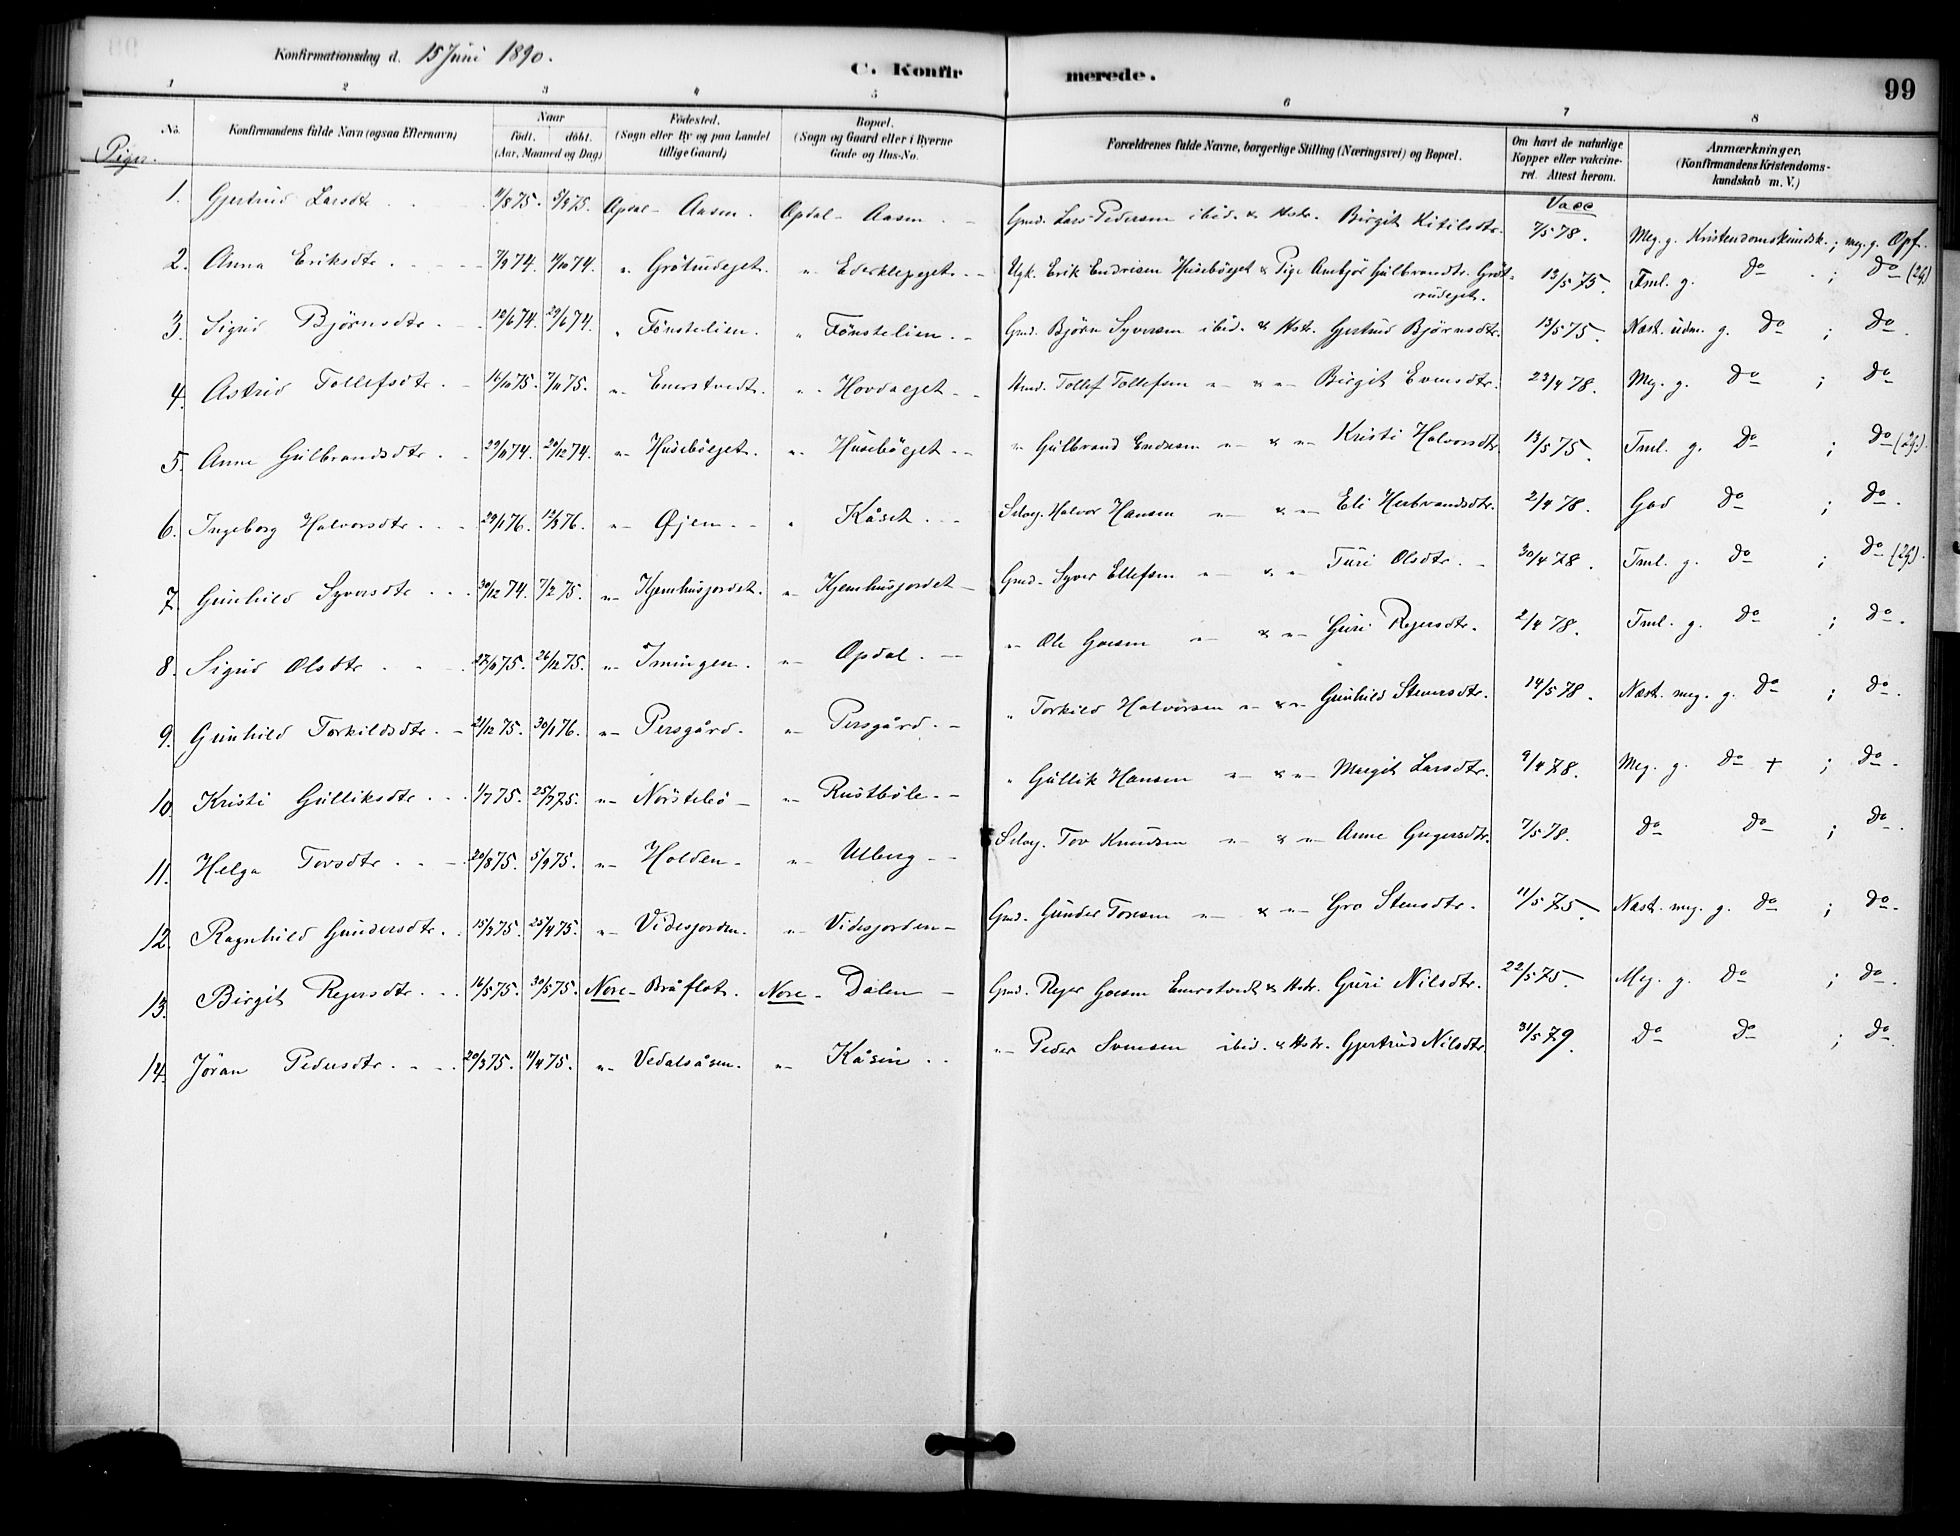 Konfirmationsdag d. 15 Juni 1890.
C. Konfirmerede.
99
1 2 3 4 5 6 7 8
No. Konfirmandens fulde Navn (ogsaa Efternavn) Naar født. døbt. (Aar, Maaned og Dag) Fødested. (Sogn eller By og paa Landet tillige Gaard) Bopæl. (Sogn og Gaard eller i Byerne Gade og Hus-No. Forældrenes fulde Navne, borgerlige Stilling (Næringsvei) og Bopæl. Om havt de naturlige Kopper eller vakcineret. Attest herom. Anmærkninger, (Konfirmandens Kristendomskundskab m. V.)
Piger.
Vacc
1. Gjertrud Larsdtr 11/8 75. 5/9 75. Opdal - Aasen. Opdal - Aasen. Gmd. Lars Pedersen ibid. & Hstr. Birgit Kitilsdtr. 7/5 78. Meg. g. Kristendomskundsk.; meg. g. Opf.
2. Anna Eriksdtr. 74. 74. " Grötrudejet. " Ederklepejet. Ugk. Erik Endresen Husebøejet & Pige Ambjør Gulbrandsdtr. Gröt-
rudejet. 13/5 75. Tml. g. do; do (2g)
3. Sigrid Björnsdtr. 12/6 74. 29/6 74. " Fönstelien. " Fönstelien. Gmd. Björn Syversen ibid. & Hstr. Gjertrud Björnsdtr. 13/5 75. Næst. udm. g. do; do.
4. Astrid Tollefsdtr. 75. 75. " Enerstvedt. " Hovdaejet. Hmd. Tollef Tollefsen " & " Birgit Evensdtr. 23/4 78. Meg. g. do; do
5. Anne Gulbrandsdtr. 74. 20/12 74. " Husebøejet. " Husebøejet. " Gulbrand Endresen " & " Kristi Halvorsdtr. 13/5 75. Tml. g. do; do (2g).
6. Ingeborg Halvorsdtr. 29/1 76. 12/3 76. " Øjen. " Kåset. Selvej. Halvor Hansen " & " Eli Herbrandsdtr. 2/4 78. God do; do.
7. Gunhild Syversdtr. 30/12 74. 7/2 75. " Kjemhusjordet. " Kjemhusjordet. Gmd. Syver Ellefsen " & " Turi Olsdtr. 30/4 78. Tml. g. do; do (2g).
8. Sigrid Olsdtr. 75. 26/12 75. " Imingen. " Opdal. " Ole Goesen " & " Guri Rejersdtr. 2/4 78. Tml. g. do; do.
9. Gunhild Torkildsdtr. 21/12 75. 30/1 76. " Persgård. " Persgård. " Torkild Halvorsen " & " Gunhild Steversdtr. 14/5 78. Næst. meg. g. do; do.
10. Kristi Gulliksdtr. 1/7 75. 25/7 75. " Nörstebö. " Rustböle. " Gullik Hansen " & " Margit Larsdtr. 9/4 78. Meg. g. do +; do.
11. Helga Tovsdtr. 20/8 75. 5/9 75. " Holden. " Ulberg. Selvej. Tov Knudsen " & " Anne Gregersdtr. 7/5 78. do do; do.
12. Ragnhild Gundersdtr. 15/3 75. 25/4 75. " Videsjorden. " Videsjorden. Gmd. Gunder Toresen " & " Gro Stensdtr. 11/5 75. Næst. meg. g. do; do.
13. Birgit Rejersdtr. 16/5 75. 30/5 75. Nore - Bråflot. Nore - Dalen. Gmd. Rejer Goesen Enerstvedt & Hstr. Guri Nilsdtr. 22/5 75. Meg. g. do; do.
14. Jöran Pedersdtr. 20/3 75. 11/4 75. " Vedalsåsen. " Kåsin. " Peder Svensen ibid. & Hstr. Gjertrud Nilsdtr. 31/5 79. do do; do.